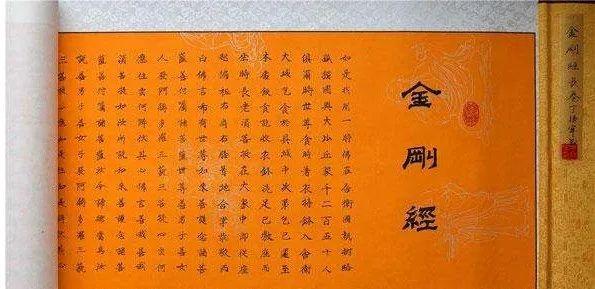 金剛經長卷
金剛經
如是我聞一時佛在舍衛國祇樹給
孤獨園與大比丘眾千二百五十人
俱爾時世尊食時著衣持鉢入舍衛
大城乞食於其城中次第乞已還至
本處飯食訖收衣鉢洗足已敷座而
坐時長老須菩提在大眾中即從座
起偏袒右肩右膝著地合掌恭敬而
白佛言希有世尊如來善護念諸菩
薩善付囑諸菩薩世尊善男子善女
人發阿耨多羅三藐三菩提心云何
應住云何降伏其心佛言善哉善哉
須菩提如汝所說如來善護念諸菩
薩善付囑諸菩薩汝今諦聽當為汝
說善男子善女人發阿耨多羅三藐
三菩提心應如是住如是降伏其心